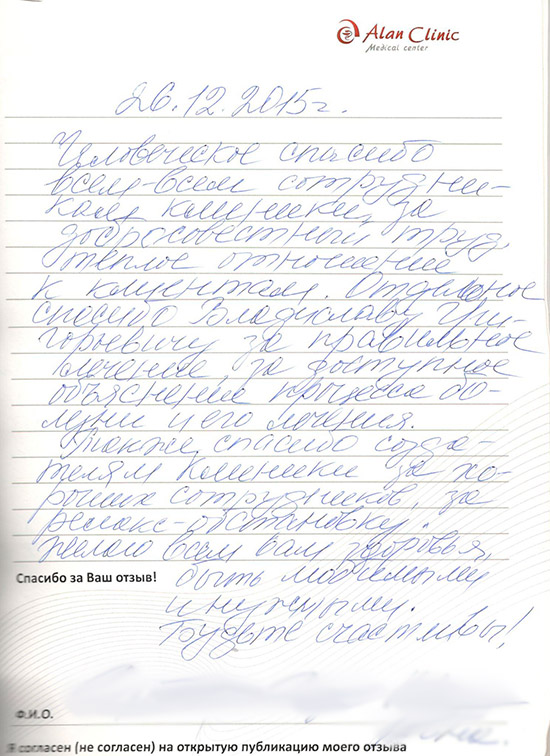 Alan Clinic
Medical center
26.12.2015г.
Человеческое спасибо
всем-всем сотрудни-
кам клиники за
добросовестный труд,
теплое отношение
к клиентам. Отдельное
спасибо Владиславу Гри-
горьевичу за правильное
лечение, за доступное
объяснение процесса бо-
лезни и его лечения.
Также, спасибо созда-
телям клиники за хо-
роших сотрудников, за
релакс-обстановку.
Желаю всем вам здоровья,
Спасибо за Ваш отзыв!
быть любимыми
и нужными.
Будьте счастливы!
Ф.И.О.
Я согласен (не согласен) на открытую публикацию моего отзыва